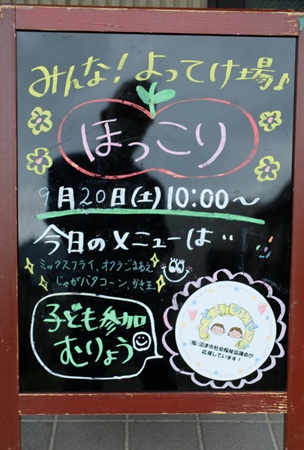 みんな!よってけ場♪
ほっこり
9月20日(土)10:00〜
今日のメニューは‥
ミックスフライ、オクラごまあえ
じゃがバタコーン、かき玉
子ども参加
むりょう
(福)沼津市社会福祉協議会が
応援しています!